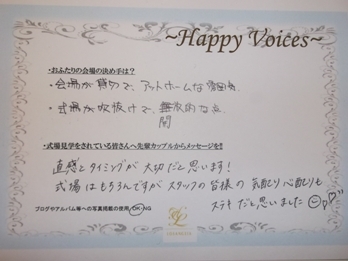 ~Happy Voices~
・おふたりの会場の決め手は？
・会場が貸切で、アットホームな雰囲気
・式場が吹抜けで、開放的な点
・式場見学をされている皆さんへ先輩カップルからメッセージを!!
直感とタイミングが大切だと思います！
式場はもちろんですが スタッフの皆様の 気配り心配りも
ステキ だと思いました
ブログやアルバム等への写真掲載の使用 OK・NG